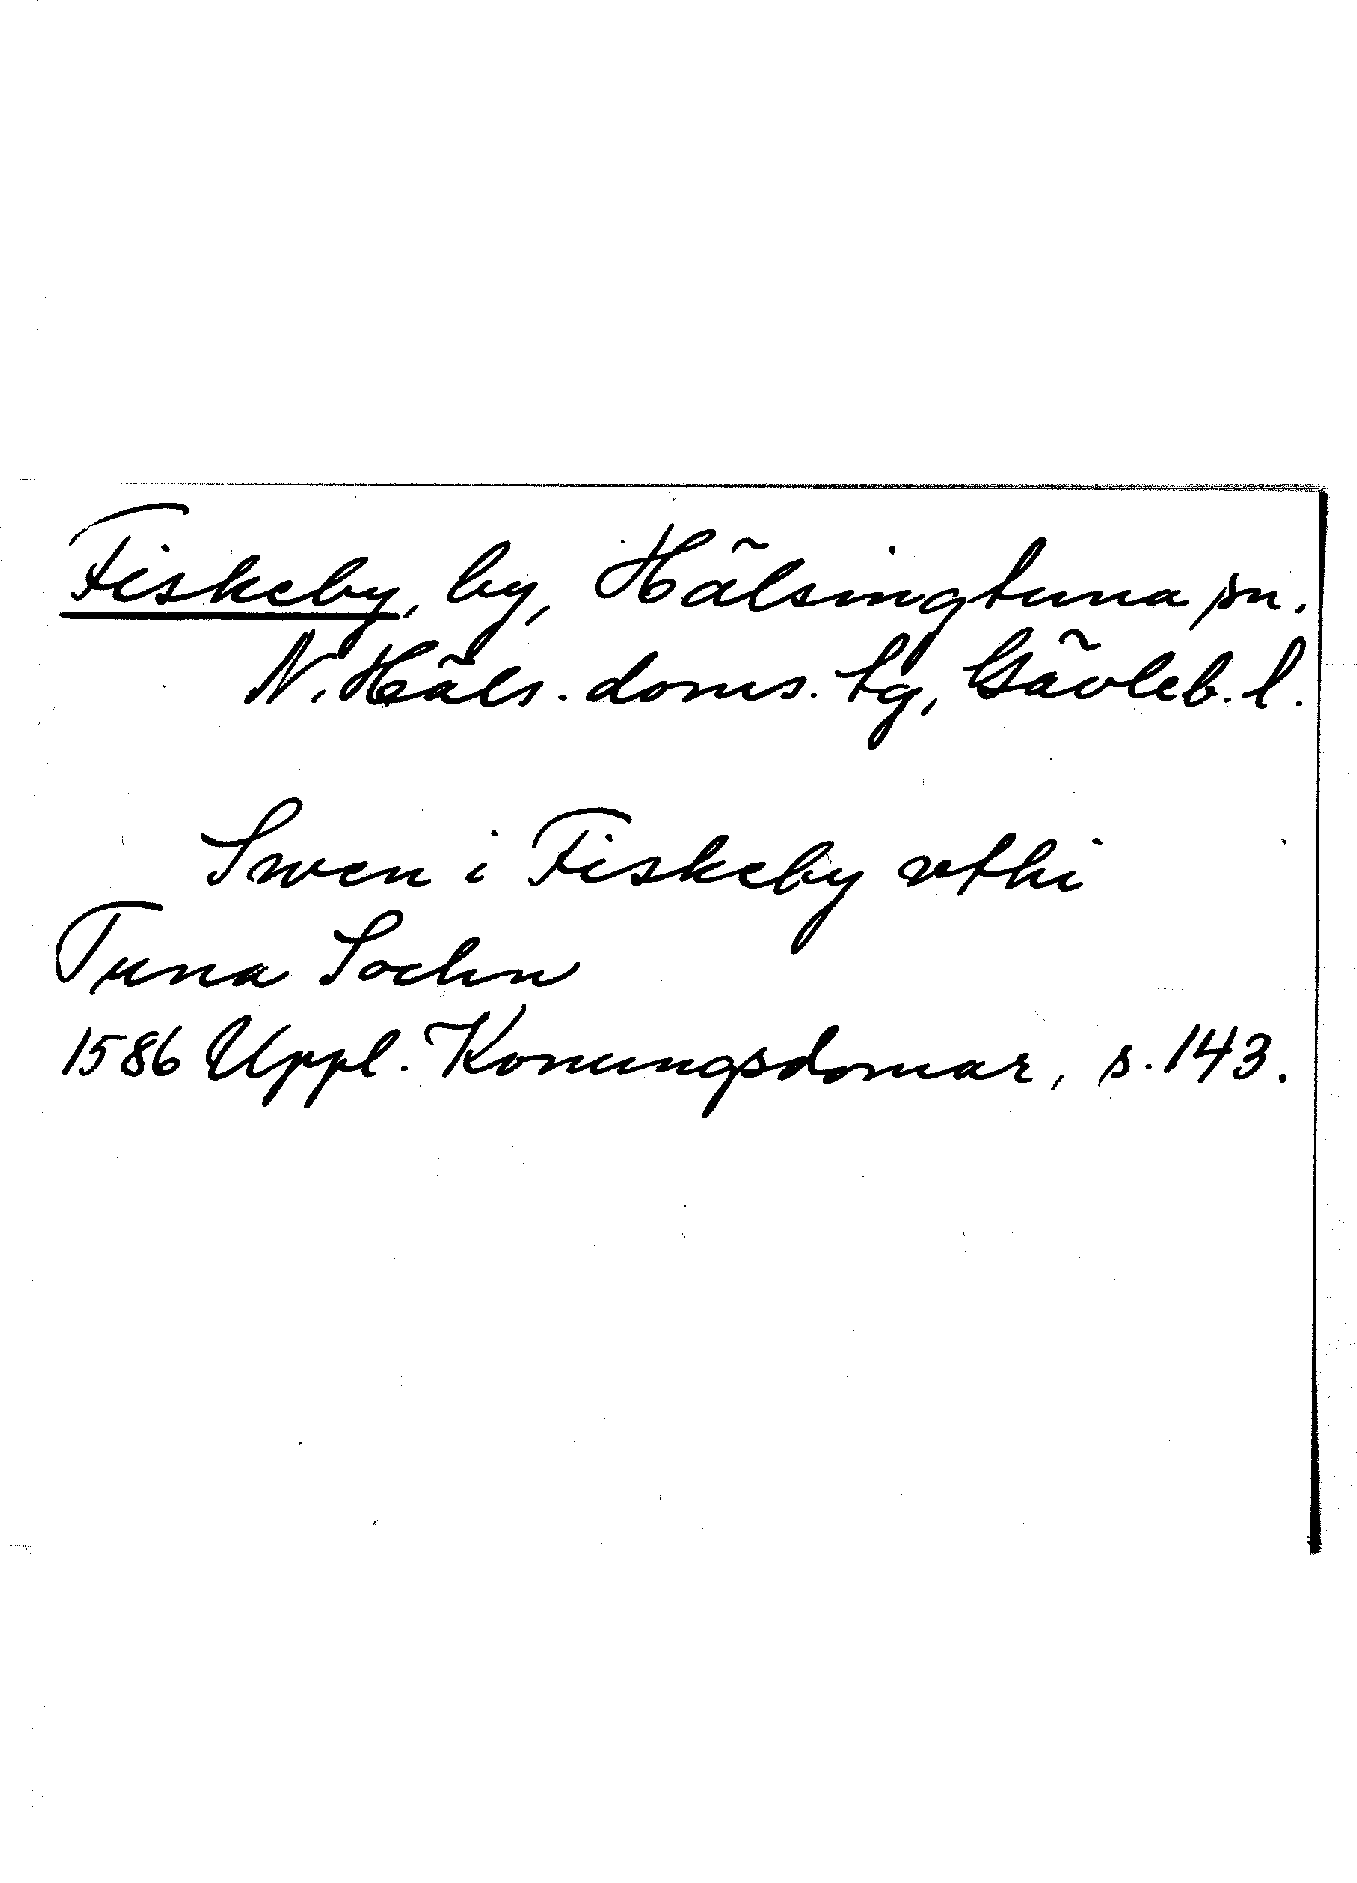 Fiskeby, by, Hälsingtuna sn.
N. Häls. doms. tg, Gävleb. l.
Swen i Fiskeby vthi
Tuna Sochn
1586 Uppl. Konungsdomar, s. 143.